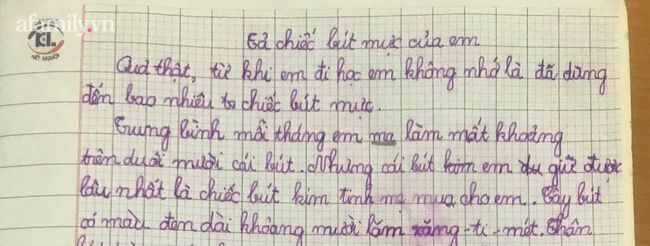 afamily.vn
KL
HẾT NGƯỜI
Tả chiếc bút mực của em
Quả thật, từ khi em đi học em không nhớ là đã dùng
đến bao nhiêu ta chiếc bút mực.
Trung bình mỗi tháng em ma làm mất khoảng
trên dưới mười cái bút. Nhưng cái bút kim em giữ được
lâu nhất là chiếc bút kim tinh mẹ mua cho em. Cây bút
có màu đen dài khoảng mười lăm xăng-ti-mét. Thân